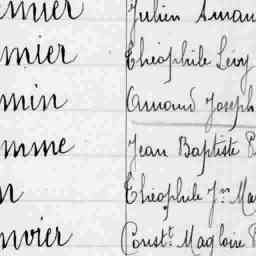 Julien Aman
mier Théophile Levy
min Armand Joseph
mme Jean Baptiste
n Théophile Jn Ma
nvier Constt Magloire